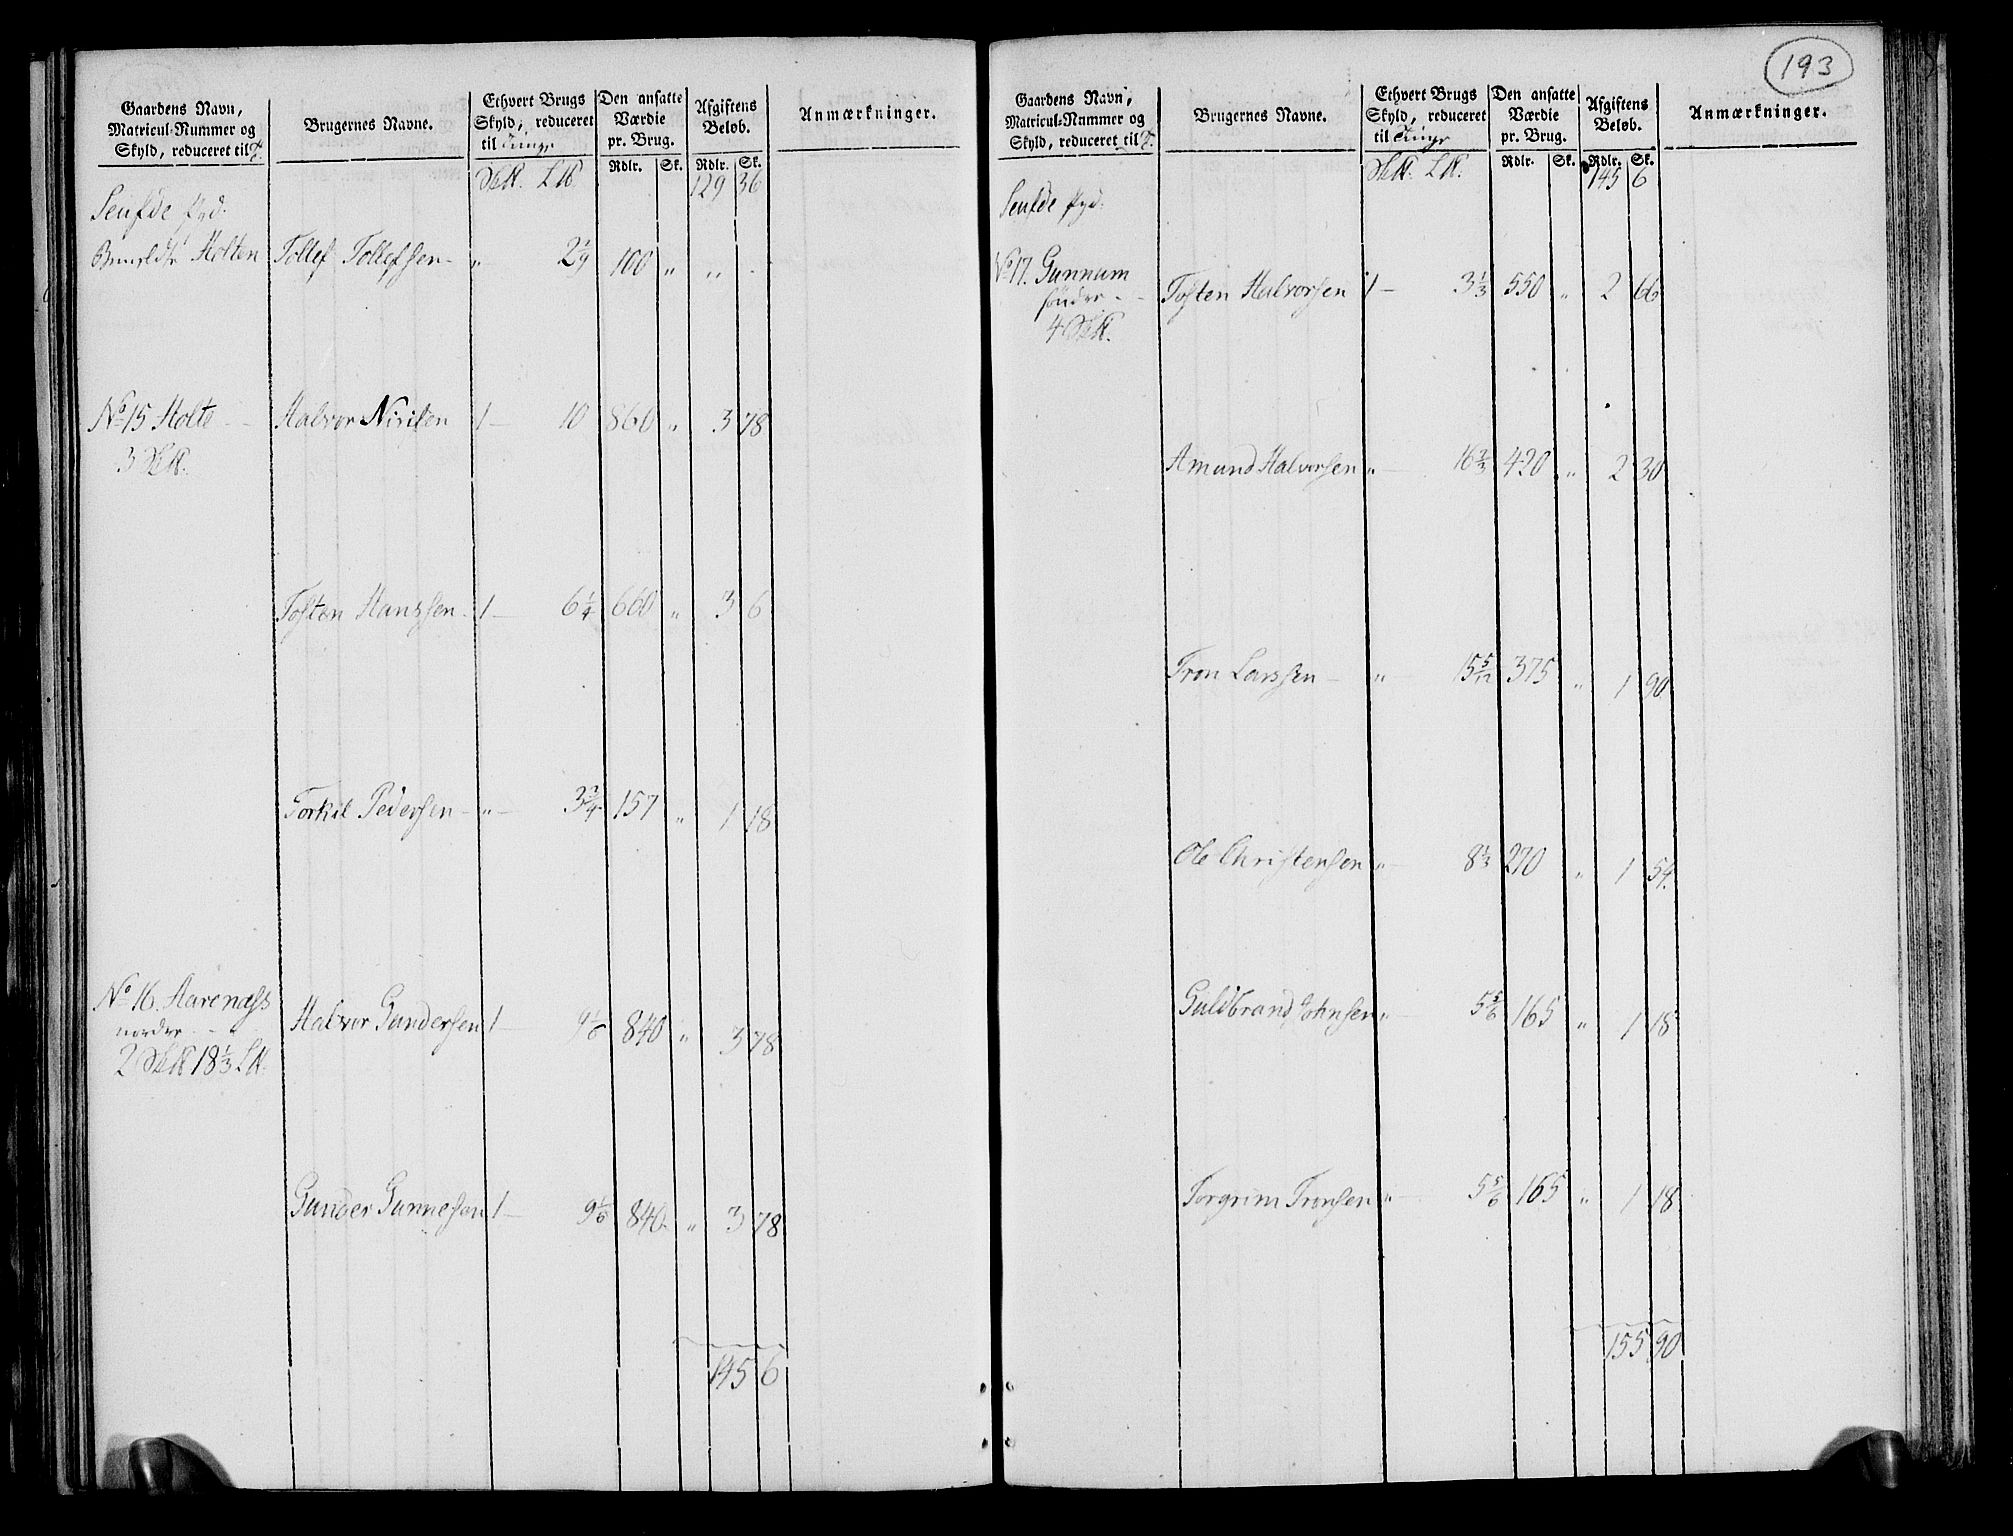 Gaardens Navn,
Matricul-Nummer og
Skyld, reduceret til T.
Brugernes Navne.
Ethvert Brugs
Skyld, reduceret
til Tunge
Den ansatte
Værdie
pr. Brug.
Rdlr. Sk.
Afgiftens
Beløb.
Rdlr. Sk.
Anmærkninger.
129 36
Holten Tollef Tollefsen - " 2 1/9 100 " "
No 15 Holte - - Halvor Nirisen 1 - 10 860 " 3 78
3
Tosten Hanssen - 1 - 6 1/4 660 " 3 6
Torkil Pedersen - " - 3 3/4 157 " 1 18
No 16. Aarenæss
nordre - - Halvor Gundersen 1 - 9 1/6 840 " 3 78
2 18 1/3
Gunder Gunnesen 1 - 9 1/6 840 " 3 78
145 6
193
Gaardens Navn,
Matricul-Nummer og
Skyld, reduceret til T.
Brugernes Navne.
Ethvert Brugs
Skyld, reduceret
til Tunge
Den ansatte
Værdie
pr. Brug.
Rdlr. Sk.
Afgiftens
Beløb.
Rdlr. Sk.
Anmærkninger.
145 6
No 17. Gunnum
søndre - - Tosten Halvorsen 1 - 3 1/3 550 " 2 66
4
Amund Halvorsen " - 16 2/3 420 " 2 30
Tron Larssen - " - 15 5/12 375 " 1 90
Ole Christensen " - 8 1/3 270 " 1 54.
Guldbrand Johnsen " - 5 5/6 165 " 1 18
Torgrim Tronsen " - 5 5/6 165 " 1 18
155 90